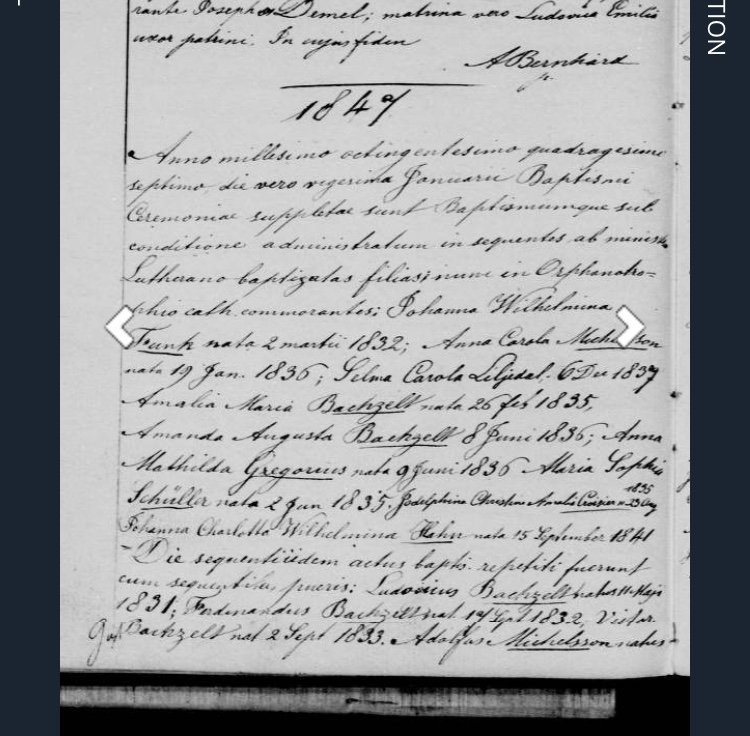 TION
rante Josepho Demel; matrina vero Ludovica Emilia
uxor patrini. In cujus fidem
A Bernhard
1847
Anno millesimo octingentesimo quadragesimo
septimo, die vero vigesima Januarii Baptismi
Ceremoniae suppletae sunt Baptismumque sub
conditione administratum in sequentes ab minist
Lutherano baptizatas filias; nunc in Orphanotro=
phio cath. commorantes; Johanna Wilhelmina
Funk nata 2 martii 1832; Anna Carola Michelsson
nata 19 Jan. 1836; Selma Carola Liljedal. 6 Dec 1837
Amalia Maria Bachzelt nata 26 feb 1835,
Amanda Augusta Bachzelt 8 Juni 1836; Anna
Mathilda Gregorius nata 9 Juni 1836 Maria Sophia
Schüller nata 2 Jun 1835. Christina Amalia 1835
Johanna Charlotta Wilhelmina Hahn nata 15 September 1841
Die sequenti iidem actus baptis. repetiti fuerunt
cum sequentibus pueris: Ludovicus Bachzelt natus 11 Maji
1831; Ferdinandus Bachzelt nat 17 Sept 1832, Victor
Bachzelt nat 2 Sept 1833. Adolfus Michelsson natus